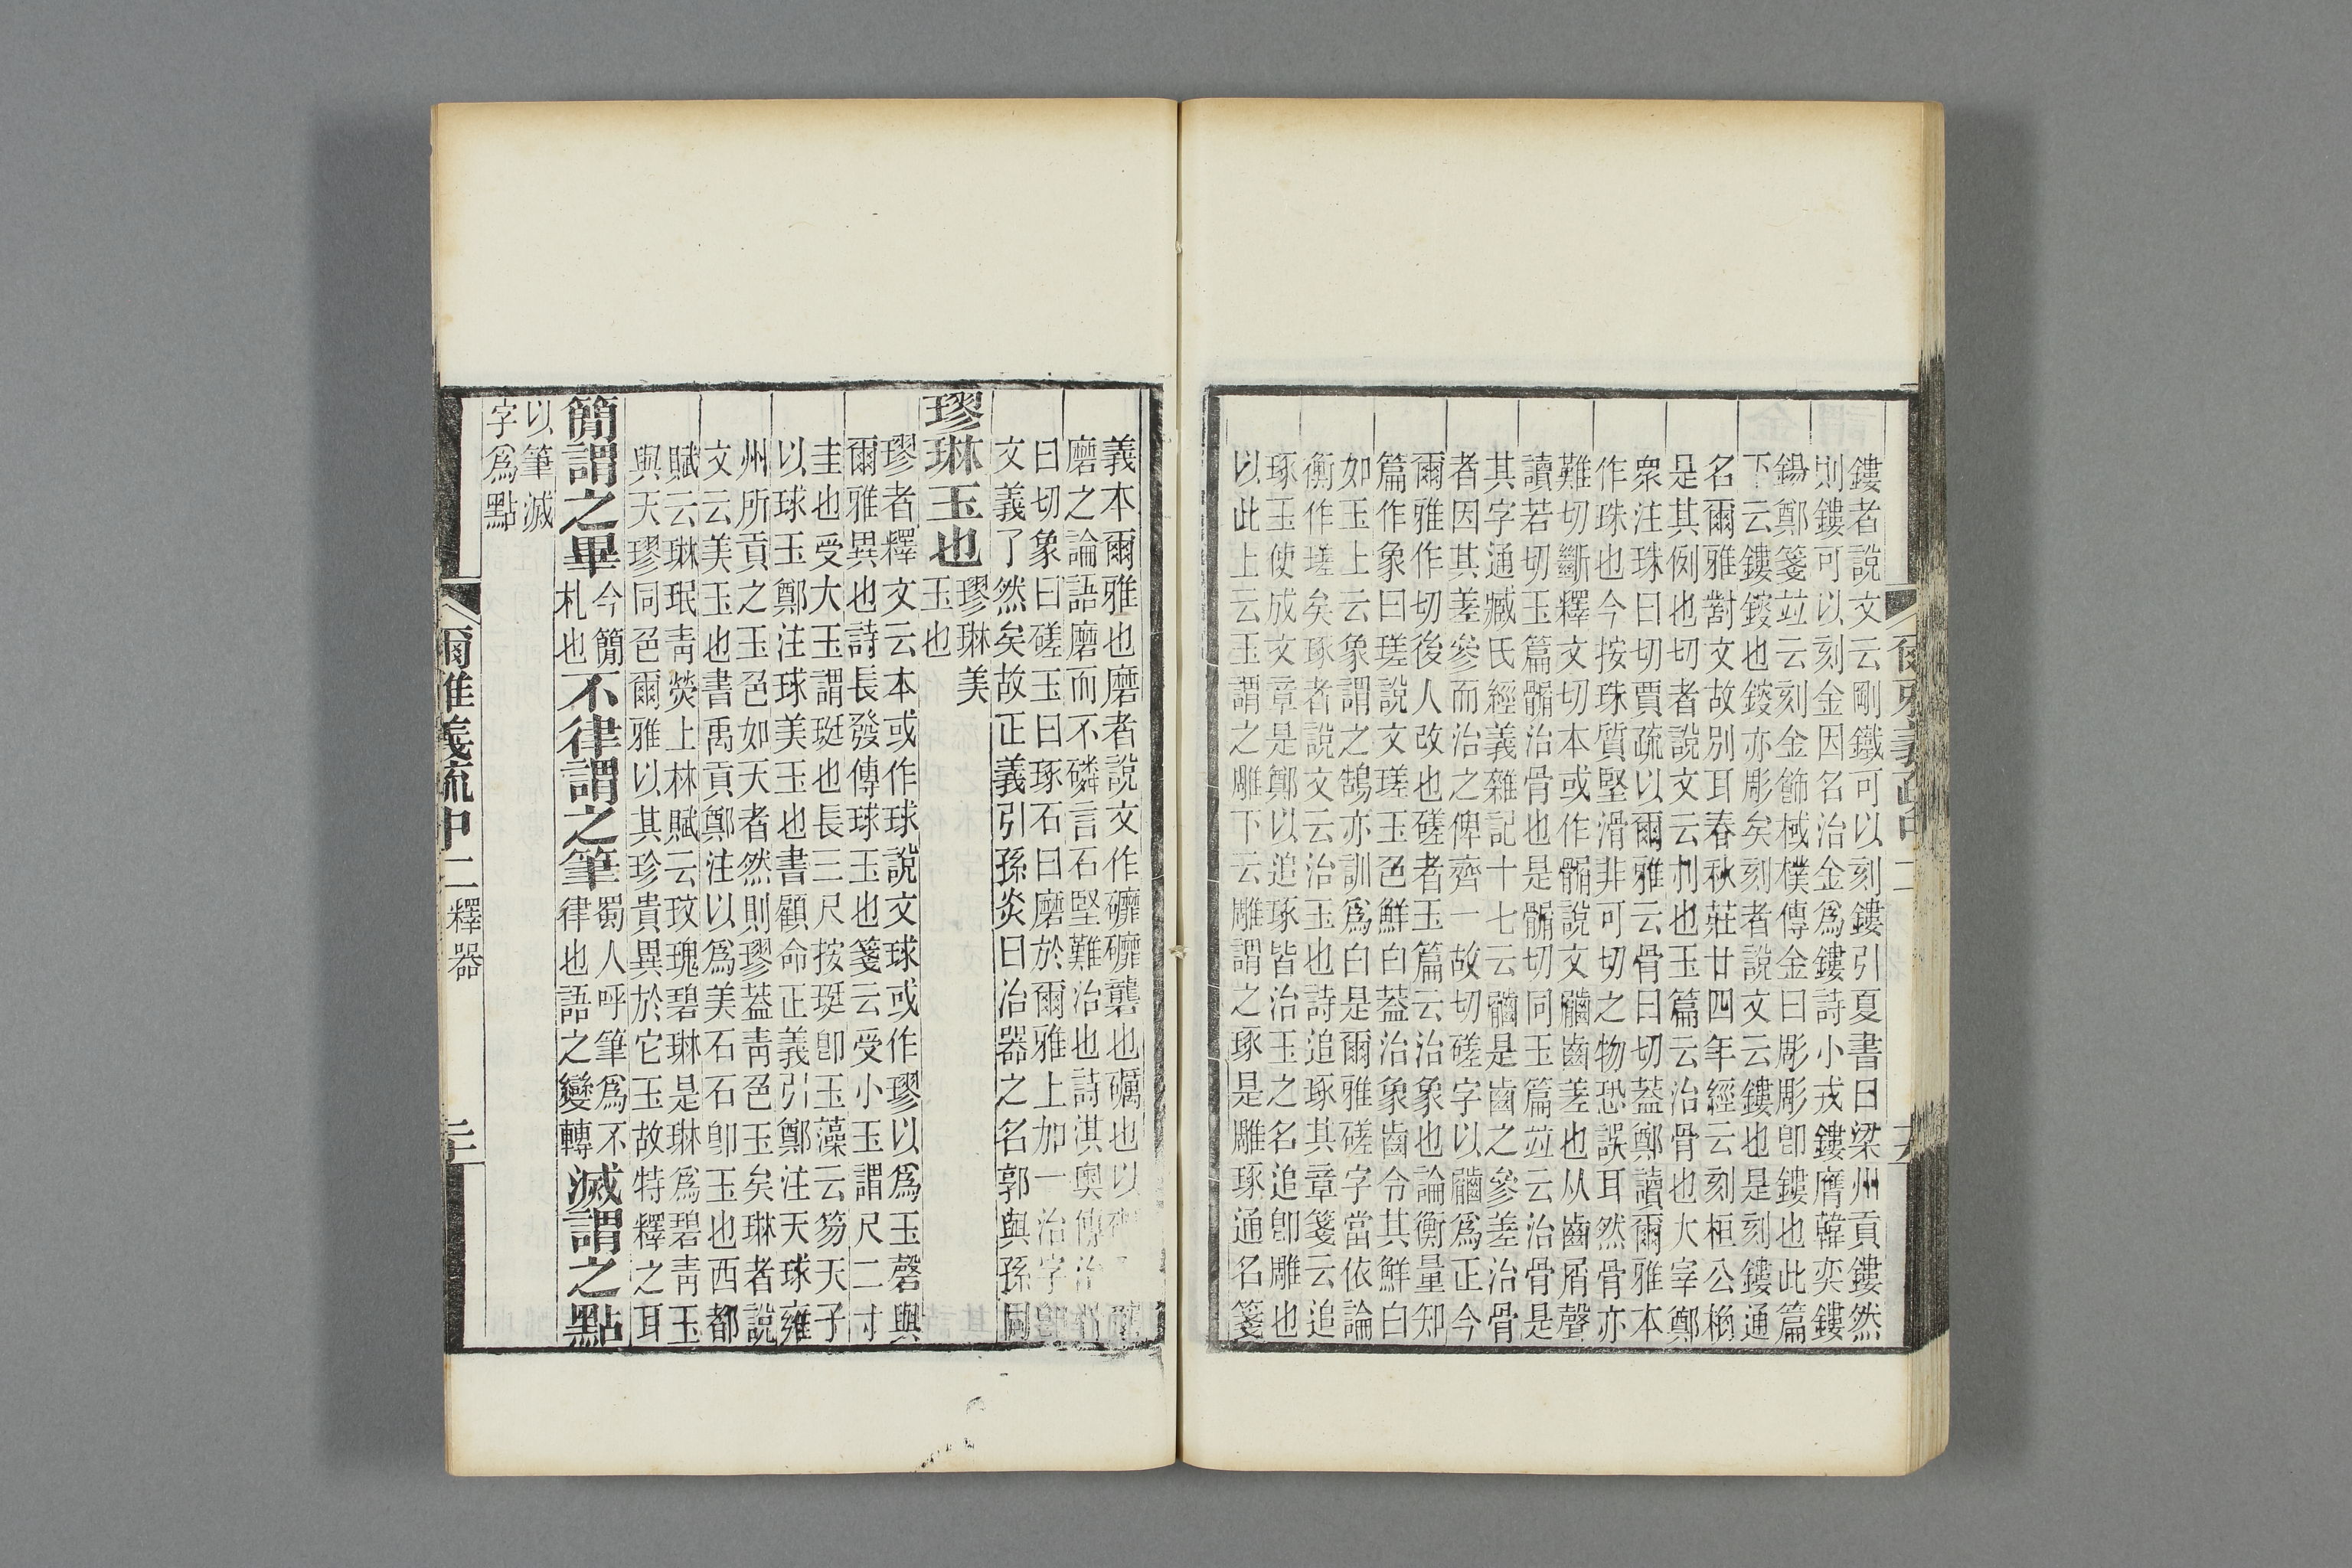 鏤者說文云剛鐵可以刻鏤引夏書曰梁州貢鏤然
則鏤可以刻金因名治金爲鏤詩小戎鏤膺韓奕鏤
鍚鄭箋竝云刻金飾棫樸傳金曰彫彫卽鏤也此篇
下云鏤鋑也鋑亦彫矣刻者說文云鏤也是刻鏤通
名爾雅對文故別耳春秋莊廿四年經云刻桓公桷
是其例也切者說文云刌也玉篇云治骨也大宰鄭
衆注珠曰切賈疏以爾雅云骨曰切蓋鄭讀爾雅本
作珠也今按珠質堅滑非可切之物恐誤耳然骨亦
難切斷釋文切本或作䶜說文䶜齒差也从齒屑聲
讀若切玉篇䯙治骨也是䯙切同玉篇竝云治骨是
其字通臧氏經義雜記十七云䶜是齒之參差治骨
者因其差參而治之俾齊一故切磋字以䶜爲正今
爾雅作切後人改也磋者玉篇云治象也論衡量知
篇作象曰瑳說文瑳玉色鮮白蓋治象齒令其鮮白
如玉上云象謂之鵠亦訓爲白是爾雅磋字當依論
衡作瑳矣琢者說文云治玉也詩追琢其章箋云追
琢玉使成文章是鄭以追琢皆治玉之名追卽雕也
以此上云玉謂之雕下云雕謂之琢是雕琢通名箋
爾雅義疏中二
義本爾雅也磨者說文作礳礳礱也礪也以
磨之論語磨而不磷言石堅難治也詩淇奥傳治
曰切象曰磋玉曰琢石曰磨於爾雅上加一治字
文義了然矣故正義引孫炎曰治器之名郭與孫同
璆琳玉也
璆琳美
玉也
璆者釋文云本或作球說文球或作璆以爲玉磬與
爾雅異也詩長發傳球玉也箋云受小玉謂尺二寸
圭也受大玉謂珽也長三尺按珽卽玉藻云笏天子
以球玉鄭注球美玉也書顧命正義引鄭注天球雍
州所貢之玉色如天者然則璆蓋靑色玉矣琳者說
文云美玉也書禹貢鄭注以爲美石石卽玉也西都
賦云琳珉靑熒上林賦云玫瑰碧琳是琳爲碧靑玉
與天璆同色爾雅以其珍貴異於它玉故特釋之耳
簡謂之畢
今簡
札也
不律謂之筆
蜀人呼筆爲不
律也語之變轉
滅謂之點
以筆滅
字爲點
爾雅義疏中二 釋器